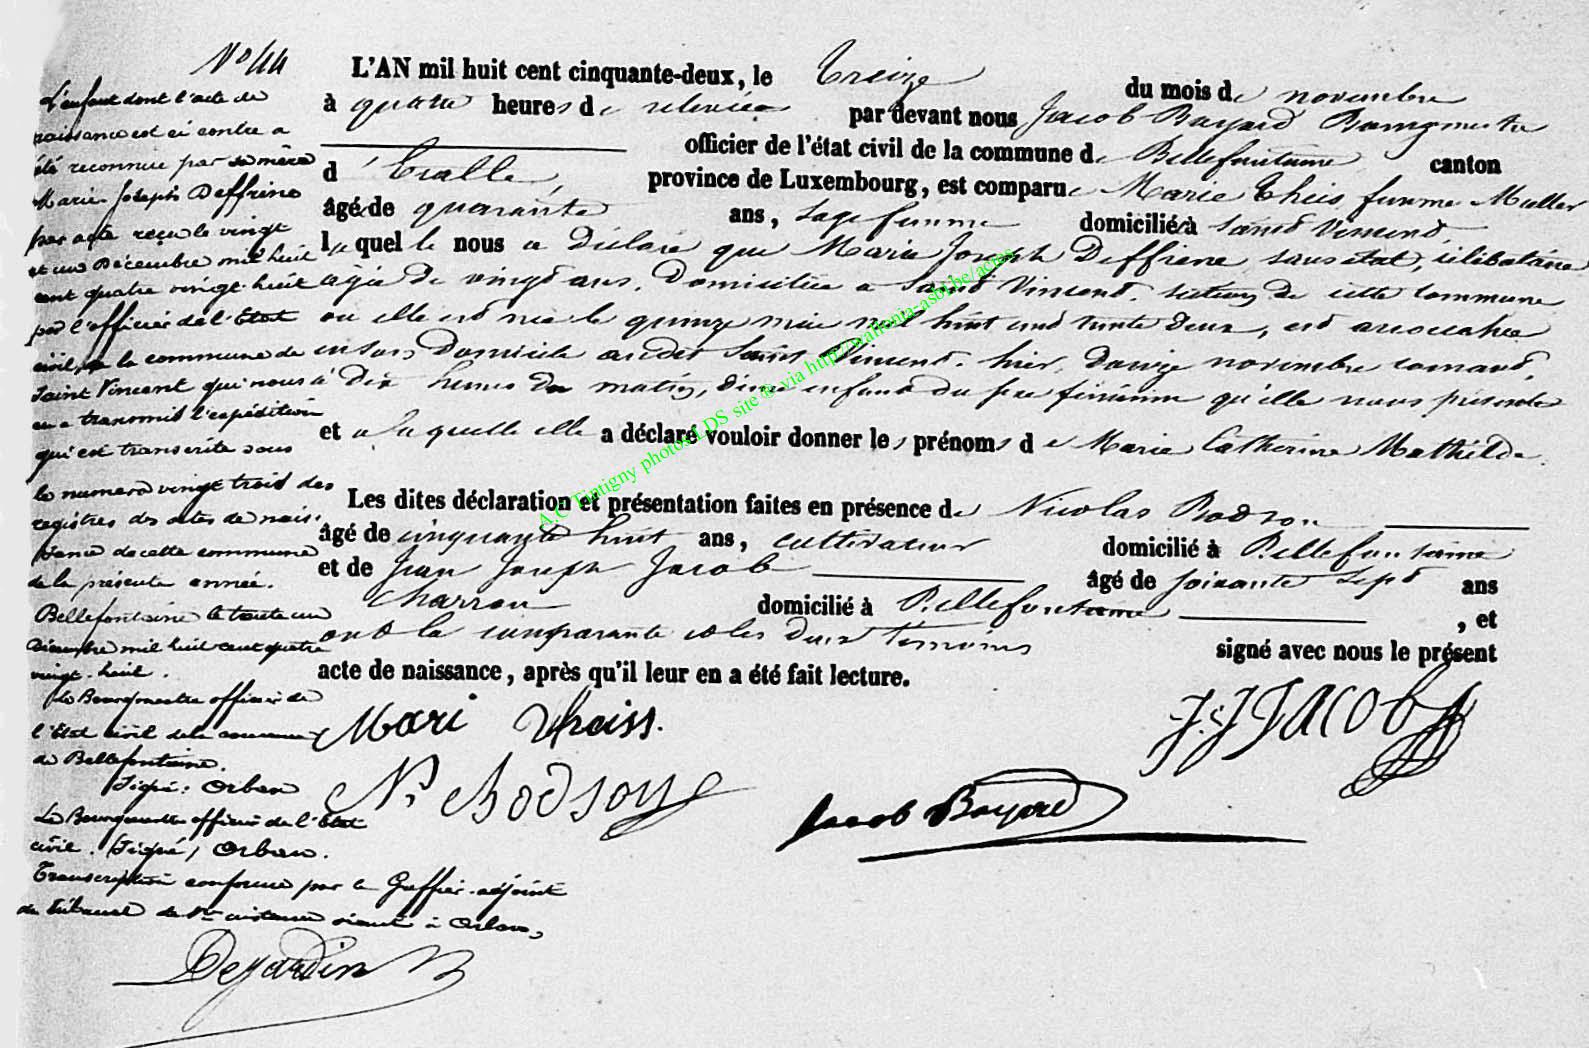 N° 44
L'enfant dont l'acte de
naissance est ci contre a
été reconnue par sa mère
Marie Joseph Deffrene
par acte reçu le vingt
et un Décembre mil huit
cent quatre vingt huit
par l'officier de l'Etat
civil de la commune de
Saint Vincent qui nous
en a transmis l'expédition
qui est transcrite sous
le numéro vingt trois des
registres des actes de nais-
sance de cette commune
de la présente année.
Bellefontaine le trente un
Décembre mil huit cent quatre
vingt-huit.
Le Bourgmestre officier de
l'Etat civil de la commune
de Bellefontaine.
Signé: Orban
Le Bourgmestre officier de l'Etat
civil. (Signé) Orban.
Transcription conforme par le Greffier-adjoint
du tribunal de 1re instance séant à Arlon,
Dejardin
L'AN mil huit cent cinquante-deux, le Treize du mois de novembre
à quatre heures de relevée par devant nous Jacob Bayard Bourgmestre
officier de l'état civil de la commune de Bellefontaine canton
d'Etalle, province de Luxembourg, est comparue Marie Theis femme Muller
âgée de quarante ans, sage femme domiciliée à Saint Vincent,
laquelle nous a déclaré que Marie Joseph Deffrene sans état, célibataire
âgée de vingt ans, domiciliée à Saint Vincent, section de cette commune
où elle est née le quinze mai mil huit cent trente deux, est accouchée
en son domicile audit Saint Vincent, hier, douze novembre courant,
à dix heures du matin, d'une enfant du sexe féminin qu'elle nous présente
et à laquelle elle a déclaré vouloir donner les prénoms de Marie Catherine Mathilde.
Les dites déclaration et présentation faites en présence de Nicolas Bodson
âgé de cinquante huit ans, cultivateur domicilié à Bellefontaine
et de Jean Joseph Jacob âgé de soixante sept ans
charron domicilié à Bellefontaine, et
ont la comparante et les deux témoins signé avec nous le présent
acte de naissance, après qu'il leur en a été fait lecture.
Mari Theiss.
J: J JACOB
Ns Bodson
Jacob Bayard
A.C Tintigny photos LDS site & via http://wallonia-asbl.be/actes